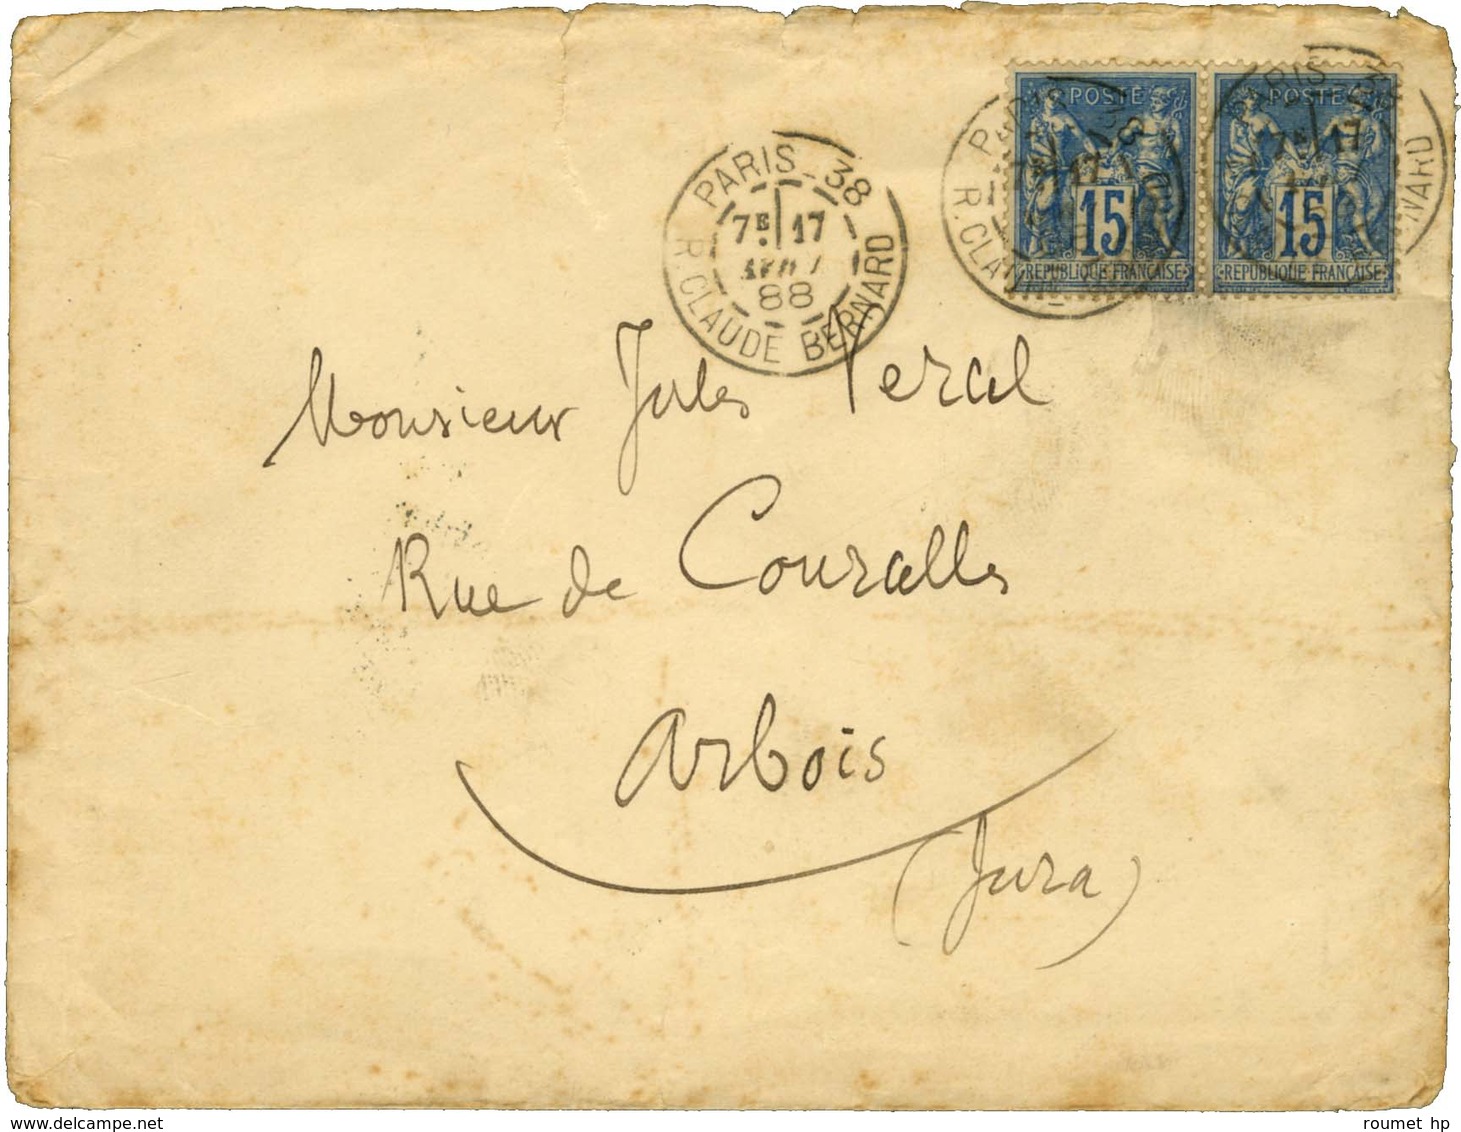 POSTE
15
REPUBLIQUE FRANÇAISE
POSTE
15
REPUBLIQUE FRANÇAISE
PARIS 38
7E 17
88
R. CLAUDE BERNARD
PARIS 38
17
R. CLA
PARIS
7E 17
NARD
Monsieur Jules Vercel
Rue de Courcelles
Arbois
(Jura)
www.delcampe.net
roumet hp